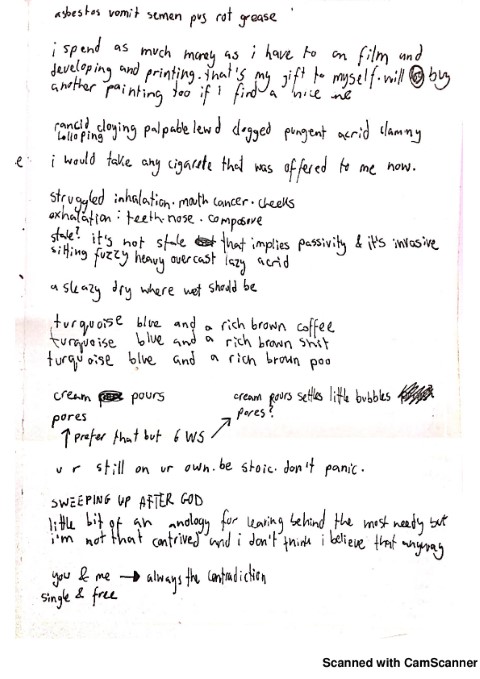 asbestos vomit semen pus rot grease
i spend as much money as i have to on film and
developing and printing. that's my gift to myself. will buy
another painting too if i find a nice one
rancid cloying palpable lewd clogged pungent acrid clammy
lolloping
e
i would take any cigarette that was offered to me now.
struggled inhalation. mouth cancer. cheeks
exhalation: teeth. nose. composure
stale? it's not stale that implies passivity & it's invasive
sitting fuzzy heavy overcast lazy acrid
a sleazy dry where wet should be
turquoise blue and a rich brown coffee
turquoise blue and a rich brown shit
turquoise blue and a rich brown poo
cream pours
pores
cream pours settles little bubbles
pores?
↑ prefer that but 6 WS
u r still on ur own. be stoic. don't panic.
SWEEPING UP AFTER GOD
little bit of an anology for leaving behind the most needy but
i'm not that contrived and i don't think i believe that anyway
you & me → always the contradiction
single & free
Scanned with CamScanner